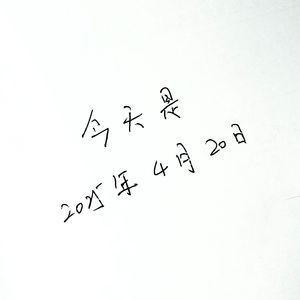 今天是
2025年4月20日